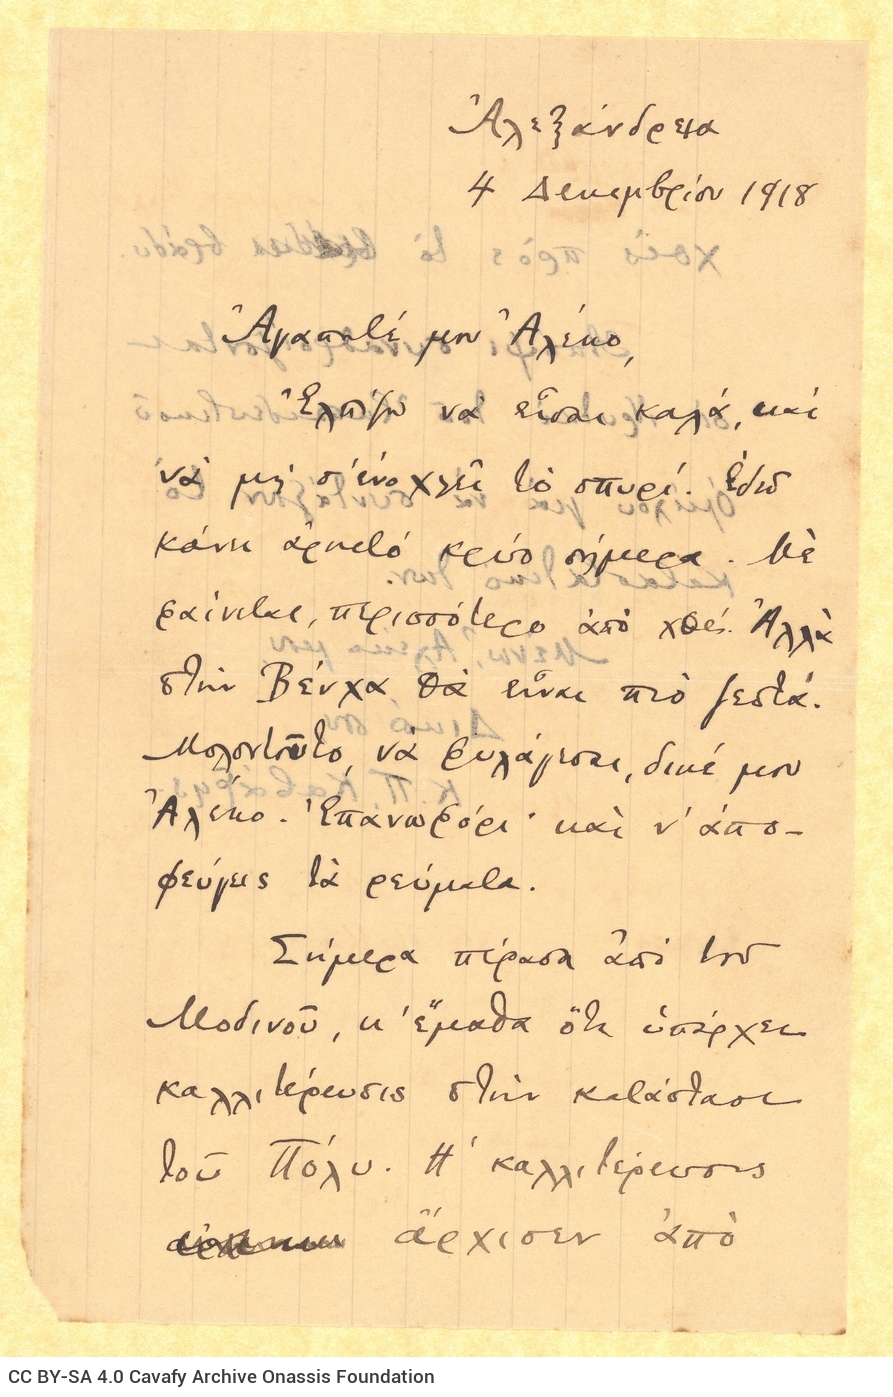 Ἀλεξάνδρεια
4 Δεκεμβρίου 1918
Ἀγαπητέ μου Ἀλέκο,
Ἐλπίζω νὰ εἶσαι καλά, καὶ
νὰ μὴ σ' ἐνοχλεῖ τὸ σπυρί. Ἐδῶ
κάνει ἀρκετὸ κρύο σήμερα. Μὲ
φαίνεται, περισσότερο ἀπὸ χθές. Ἀλλὰ
στὴν Βένχα θὰ εἶναι πιὸ ζεστά.
Μολοντοῦτο, νὰ φυλάγεσαι, δικέ μου
Ἀλέκο. Ἐπανωφόρι· καὶ ν' ἀπο-
φεύγεις τὰ ρεύματα.
Σήμερα πέρασα ἀπὸ τοῦ
Μοδινοῦ, κ' ἔμαθα ὅτι ὑπάρχει
καλλιτέρευσις στὴν κατάστασι
τοῦ Πόλυ. Η καλλιτέρευσις
ἄρχισεν ἀπὸ
CC BY-SA 4.0 Cavafy Archive Onassis Foundation